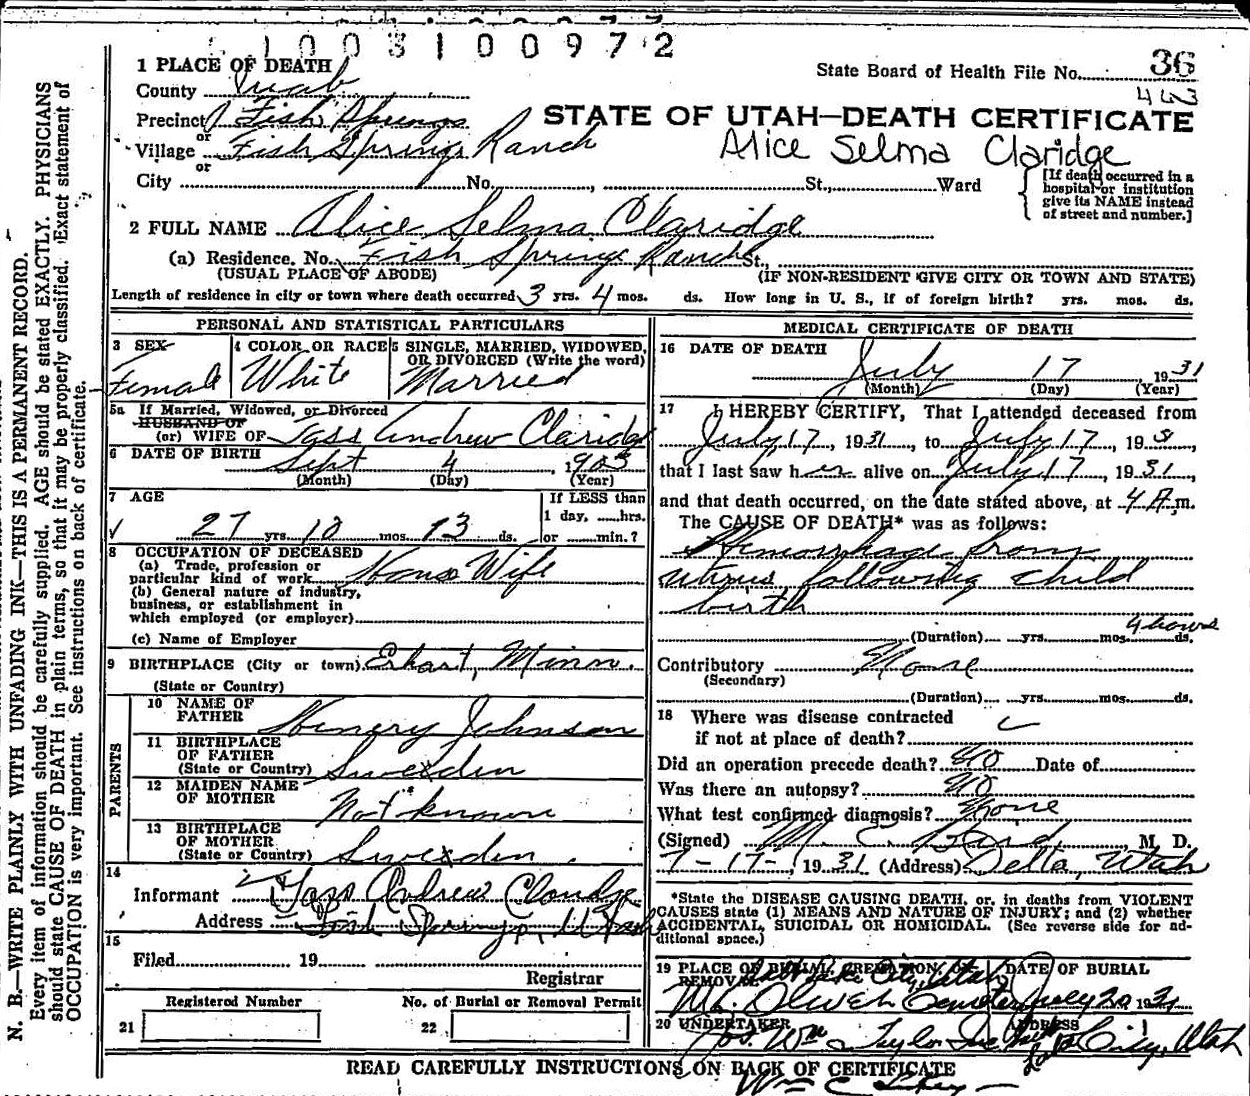 1003100972
1 PLACE OF DEATH
State Board of Health File No. 36
County Juab
443
Precinct Fish Springs
STATE OF UTAH—DEATH CERTIFICATE
or
Village Fish Springs Ranch
Alice Selma Claridge
or
City No. , St., Ward
[If death occurred in a hospital or institution give its NAME instead of street and number.]
2 FULL NAME Alice Selma Claridge
(a) Residence. No. Fish Springs Ranch St.,
(USUAL PLACE OF ABODE) (IF NON-RESIDENT GIVE CITY OR TOWN AND STATE)
Length of residence in city or town where death occurred 3 yrs. 4 mos. ds. How long in U. S., if of foreign birth? yrs. mos. ds.
PERSONAL AND STATISTICAL PARTICULARS
3 SEX
Female
4 COLOR OR RACE
White
5 SINGLE, MARRIED, WIDOWED, OR DIVORCED (Write the word)
Married
5a If Married, Widowed, or Divorced
HUSBAND OF
(or) WIFE OF Tass Andrew Claridge
6 DATE OF BIRTH Sept 4, 1903
(Month) (Day) (Year)
7 AGE
27 yrs. 10 mos. 13 ds.
If LESS than
1 day, hrs.
or min.?
8 OCCUPATION OF DECEASED
(a) Trade, profession or
particular kind of work House Wife
(b) General nature of industry,
business, or establishment in
which employed (or employer)
(c) Name of Employer
9 BIRTHPLACE (City or town) Erhart, Minn.
(State or Country)
PARENTS
10 NAME OF
FATHER Henery Johnson
11 BIRTHPLACE
OF FATHER
(State or Country) Sweden
12 MAIDEN NAME
OF MOTHER Not known
13 BIRTHPLACE
OF MOTHER
(State or Country) Sweden.
14
Informant Tass Andrew Claridge
Address Fish Springs, Utah
15
Filed 19
Registrar
Registered Number
21
No. of Burial or Removal Permit
22
MEDICAL CERTIFICATE OF DEATH
16 DATE OF DEATH
July 17 1931
(Month) (Day) (Year)
17 I HEREBY CERTIFY, That I attended deceased from
July 17, 1931, to July 17, 193
that I last saw her alive on July 17, 1931,
and that death occurred, on the date stated above, at 4 A.m.
The CAUSE OF DEATH* was as follows:
Hemorrhage from
uterus following child
birth
4 hours
(Duration) yrs. mos. ds.
Contributory None
(Secondary)
(Duration) yrs. mos. ds.
18 Where was disease contracted
if not at place of death?
Did an operation precede death? No Date of
Was there an autopsy? No
What test confirmed diagnosis? None
(Signed) M. E. Bird, M. D.
7-17-, 1931 (Address) Delta, Utah
*State the DISEASE CAUSING DEATH, or, in deaths from VIOLENT
CAUSES state (1) MEANS AND NATURE OF INJURY; and (2) whether
ACCIDENTAL, SUICIDAL OR HOMICIDAL. (See reverse side for ad-
ditional space.)
19 PLACE OF BURIAL, CREMATION, OR
REMOVAL Salt Lake City, Utah
Mt. Olivet Cemetery
DATE OF BURIAL
July 20 1931
20 UNDERTAKER
Jos. Wm Taylor Inc
ADDRESS
Salt Lake City, Utah
READ CAREFULLY INSTRUCTIONS ON BACK OF CERTIFICATE
Wm C
N. B.—WRITE PLAINLY WITH UNFADING INK—THIS IS A PERMANENT RECORD.
Every item of information should be carefully supplied. AGE should be stated EXACTLY. PHYSICIANS
should state CAUSE OF DEATH in plain terms, so that it may be properly classified. Exact statement of
OCCUPATION is very important. See instructions on back of certificate.